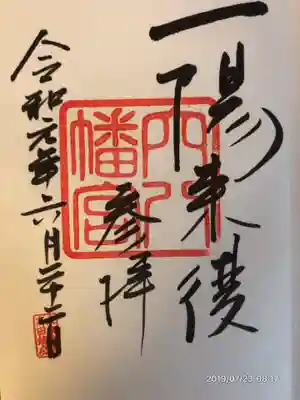 一陽来復
参拝
穴八
幡宮
令和元年六月二十二日
2019/07/23 08:17